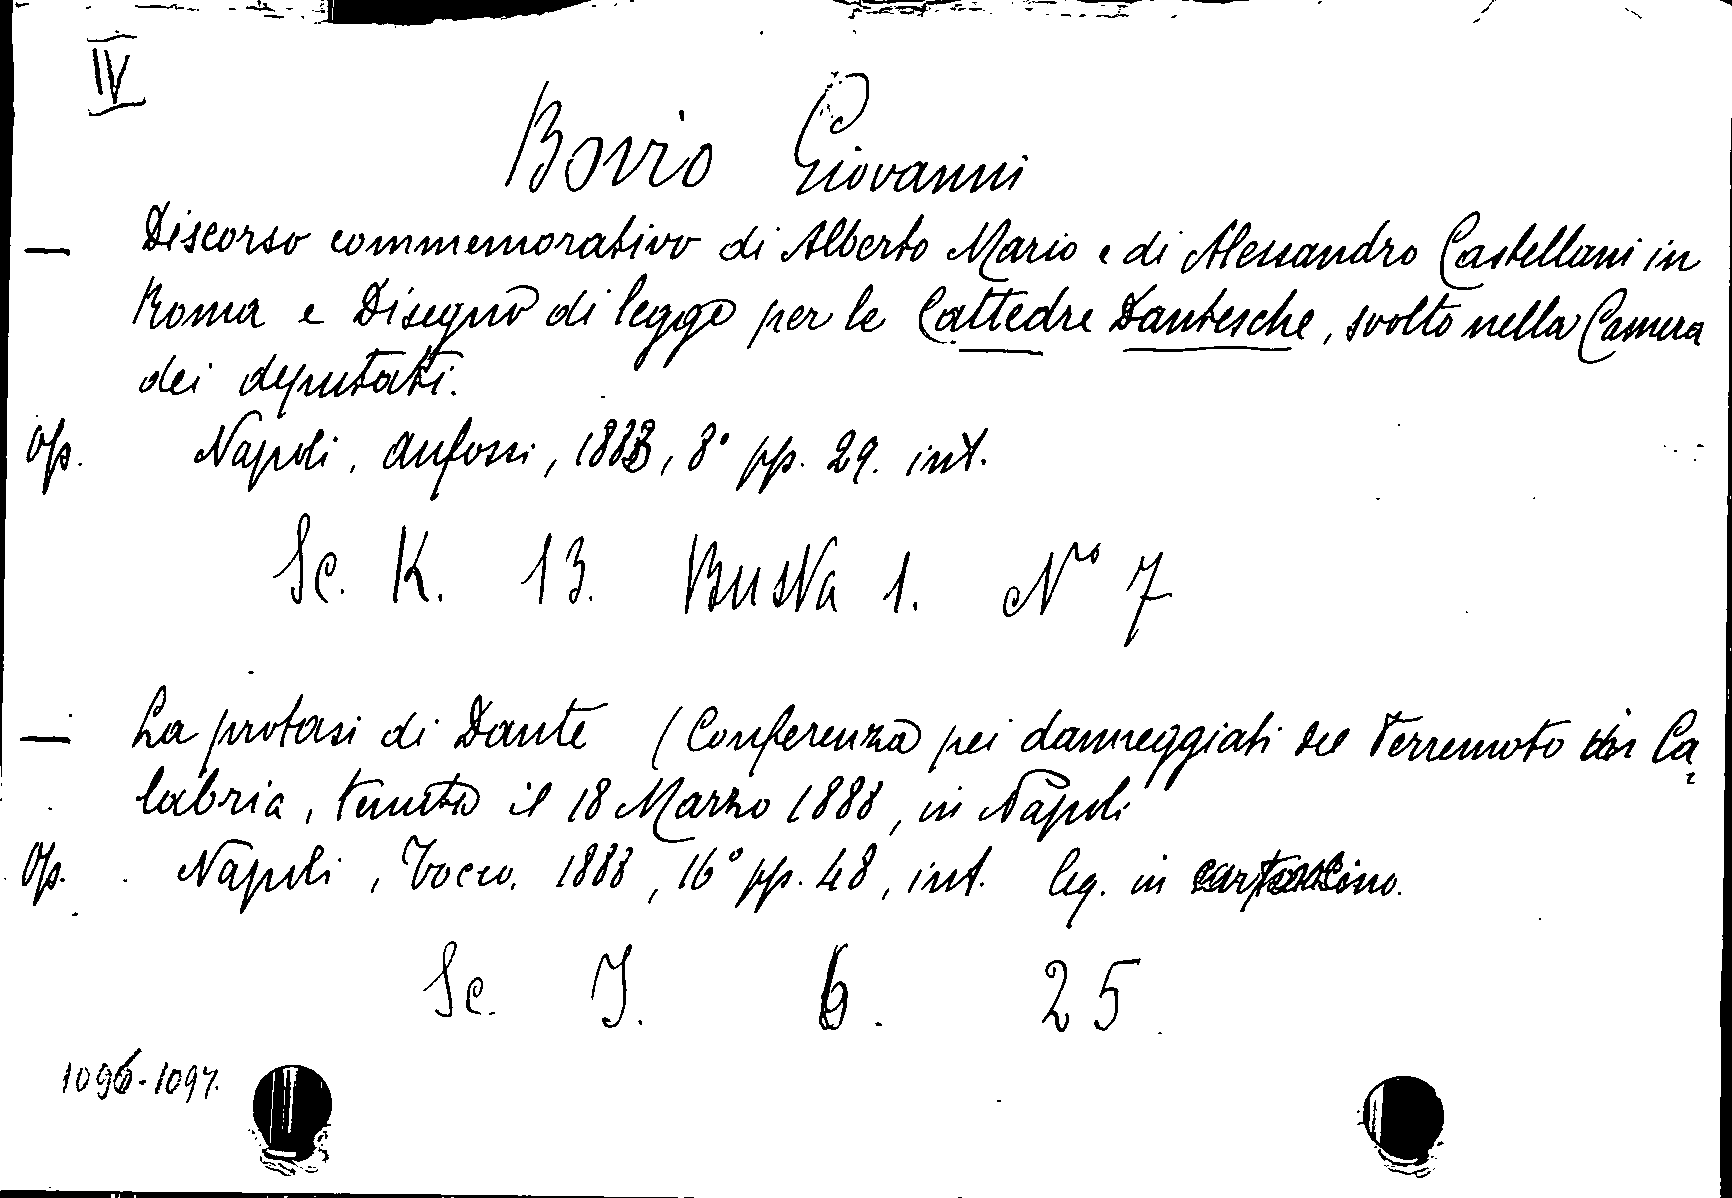 IV
Bovio Giovanni
— Discorso commemorativo di Alberto Mario e di Alessandro Castellani in
Roma e Disegno di legge per le Cattedre Dantesche, svolto nella Camera
dei deputati.
Op. Napoli, Anfossi, 1883, 8° pp. 29. int.
Sc. K. 13. Busta 1. N° 7
— La protasi di Dante (Conferenza pei danneggiati del Terremoto in Ca-
labria, tenuta il 18 Marzo 1888, in Napoli
Op. Napoli, Tocco. 1888, 16° pp. 48, int. leg. in cartoncino.
Sc. J. 6. 25.
1096-1097.